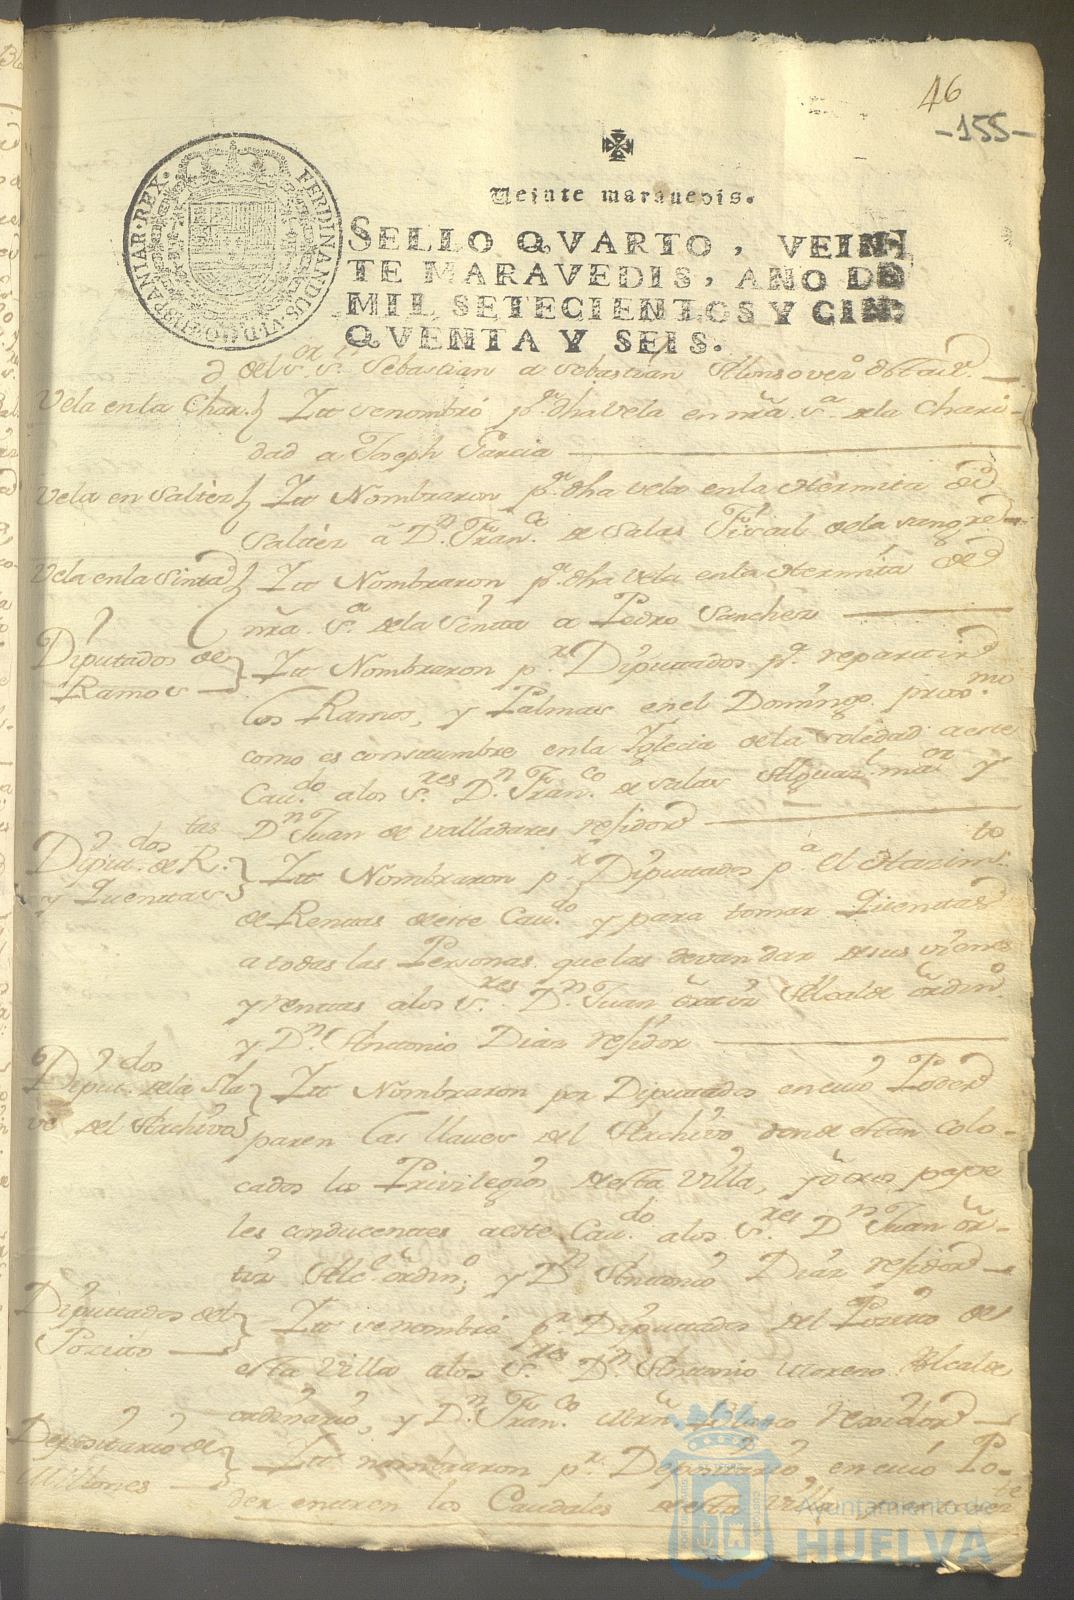 46
-155-
Veinte maravedis.
SELLO QVARTO, VEIN
TE MARAVEDIS, AÑO DE
MIL, SETECIENTOS Y CIN
QVENTA Y SEIS.
FERDINANDUS VI D G HISPANIAR REX
del Sr. Sn. Sebastian a Sebastian Alonso
Vela en la Char. Itt se nombró pa. dha vela en nra. Sa. de la Chari-
dad a Joseph Garcia
Vela en Saltèz Itt Nombraron pa. dha vela en la Hermita de
Saltèz à Dn. Franco. de Salas Fiscal de la sangre
Vela en la Sinta Itt Nombraron pa. dha vela en la Hermita de
nra. Sa. de la Sinta a Pedro Sanchez
Diputados de Itt Nombraron pr. Diputados pa. repartir
Ramos los Ramos, y Palmas en el Domingo proxmo
como es constumbre en la Iglecia de la Soledad a este
Cavdo. a los Sres. Dn. Franco. de Salas Alguazl. mor. y
Dn Juan de Valladares residor
Diputdos. de Rtas. Itt Nombraron pr. Diputados pa. el Hazimto.
y Quentas de Rentas de este Cavdo. y para tomar Quentas
a todas las Personas que las devan dar de sus vienes
y rentas a los Sres. Dn. Juan Alcalde ordino.
y Dn. Antonio Diaz residor
Diputdos. de la lla Itt Nombraron por Diputados en cuio Poder
ve del Archivo paren las llaves del Archivo donde estan colo-
cados los Privilegios de esta Villa, y otros pape
les conducentes a este Cavdo. a los Sres. Dn Juan
Alce. ordino, y Dn Antonio Diaz residor
Diputados del Itt se nombró pr. Diputados del Pozito de
Pozito esta Villa a los Sres. Dn. Antonio Moreno Alcalde
ordinario, y Dn. Franco. Blanco rexidor
Depositario de Itt nombraron pr. Depositario en cuio Po-
der entren los Caudales de esta Villa
Ayuntamiento de
HUELVA